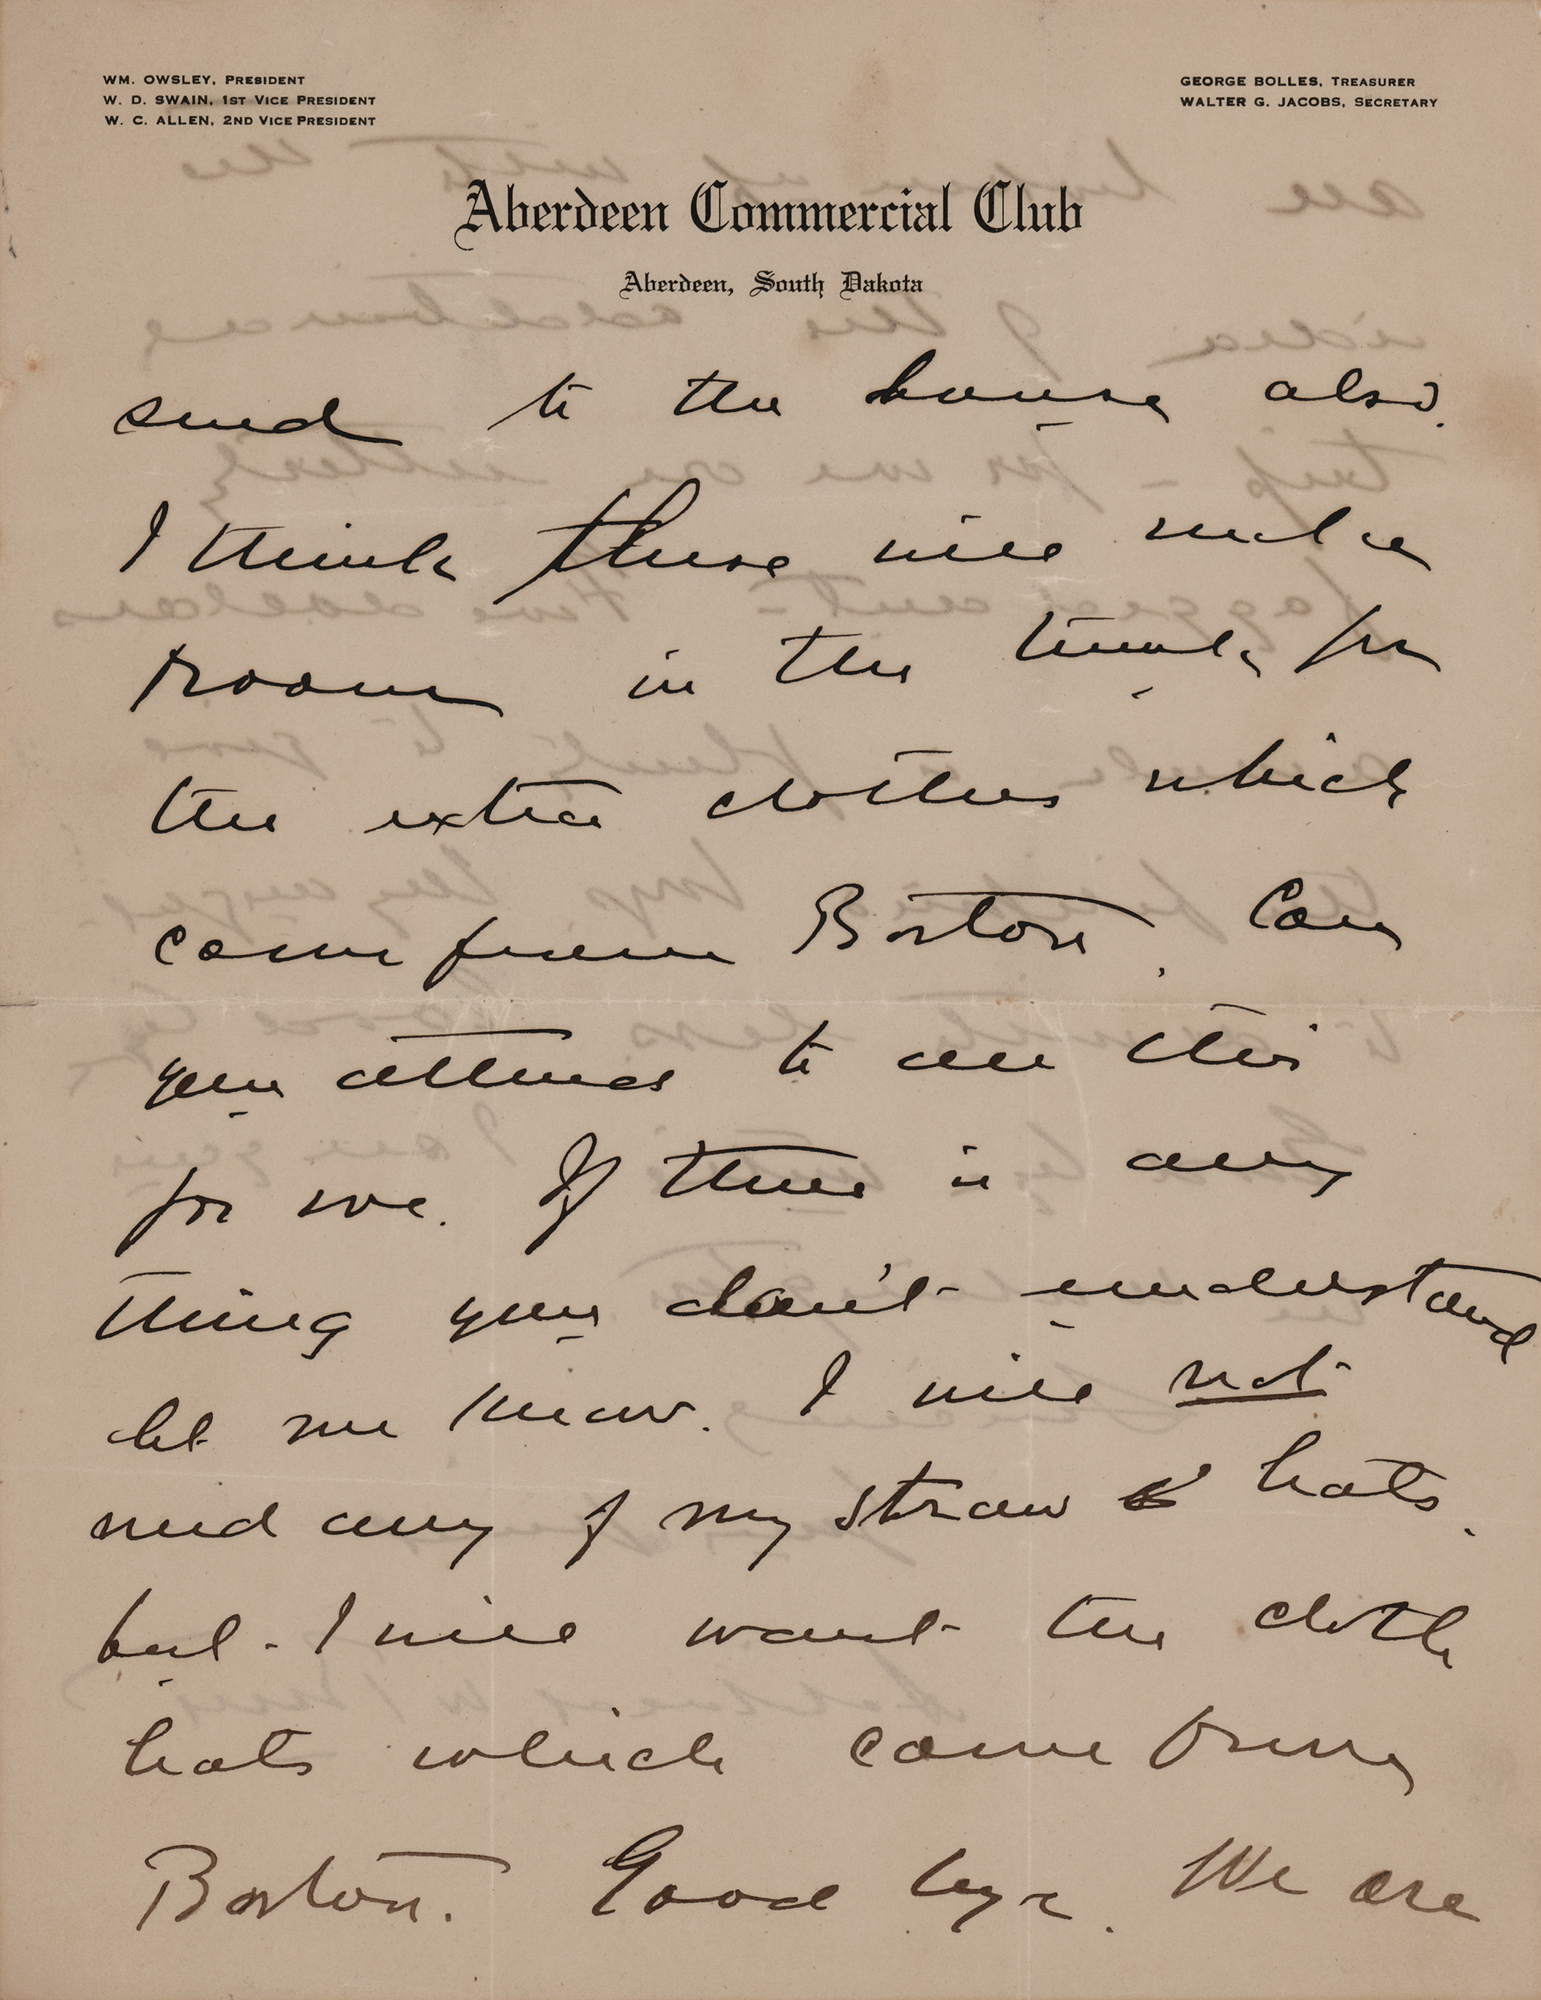 WM. OWSLEY, PRESIDENT
W. D. SWAIN, 1ST VICE PRESIDENT
W. C. ALLEN, 2ND VICE PRESIDENT
GEORGE BOLLES, TREASURER
WALTER G. JACOBS, SECRETARY
Aberdeen Commercial Club
Aberdeen, South Dakota
send to the house also.
I think there will not be
room in the trunk for
the extra clothes which
come from Boston. Can
you attend to all this
for me. If there is any
thing you don't understand
let me know. I will not
need any of my straw hats.
but I will want the cloth
hats which came from
Boston. Good bye. We are